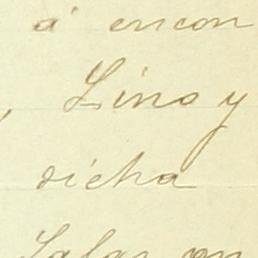 á encon
, Lino y
dicha
Salas, en